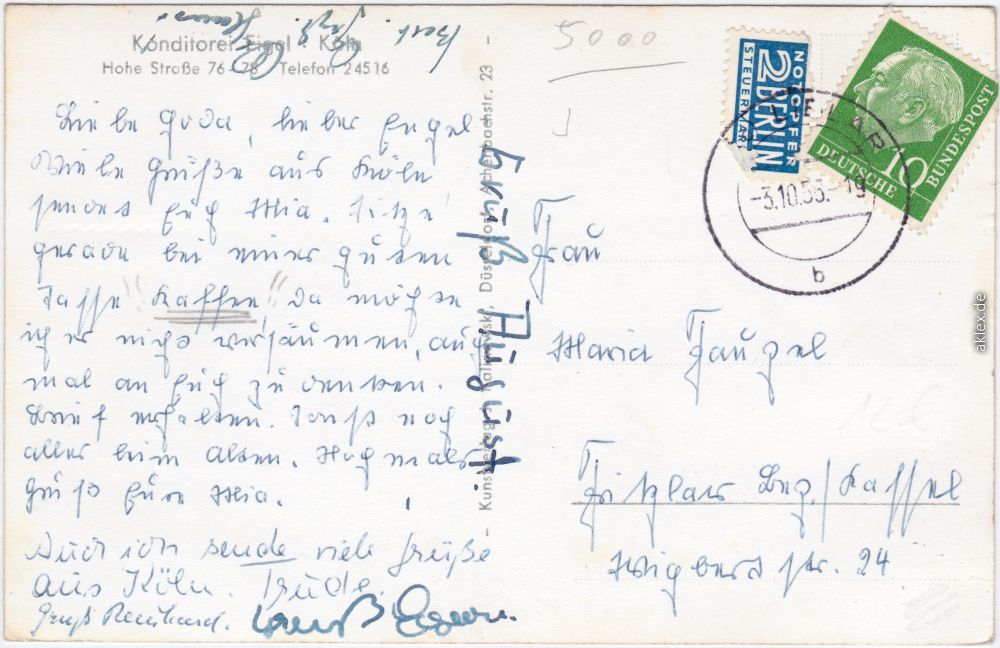 Best. Grß.
Hans.
Konditorei Eigel · Köln
Hohe Straße 76-78 Telefon 24516
5000
Liebe Goda, lieber Engel
Viele Grüße aus Köln
sendet Euch Mia. Sitze
gerade bei einer guten
Tasse "Kaffee", Da möchte
ich es nicht versäumen, auch
mal an Euch zu denken.
Brief erhalten. Sonst noch
alles beim Alten. Nochmals
Grüß Eure Mia.
Auch ich sende viele Grüße
aus Köln. Trude.
Gruß Reinhard.
Gruß
Gruß August.
Kunstverlag Düsseldorf, 23
NOTOPFER
2 BERLIN
STEUERMARKE
DEUTSCHE
BUNDESPOST
10
-3.10.55.-19
b
Frau
Maria Faupel
Fritzlar Bez./Kassel
Wigbertstr. 24
aklex.de